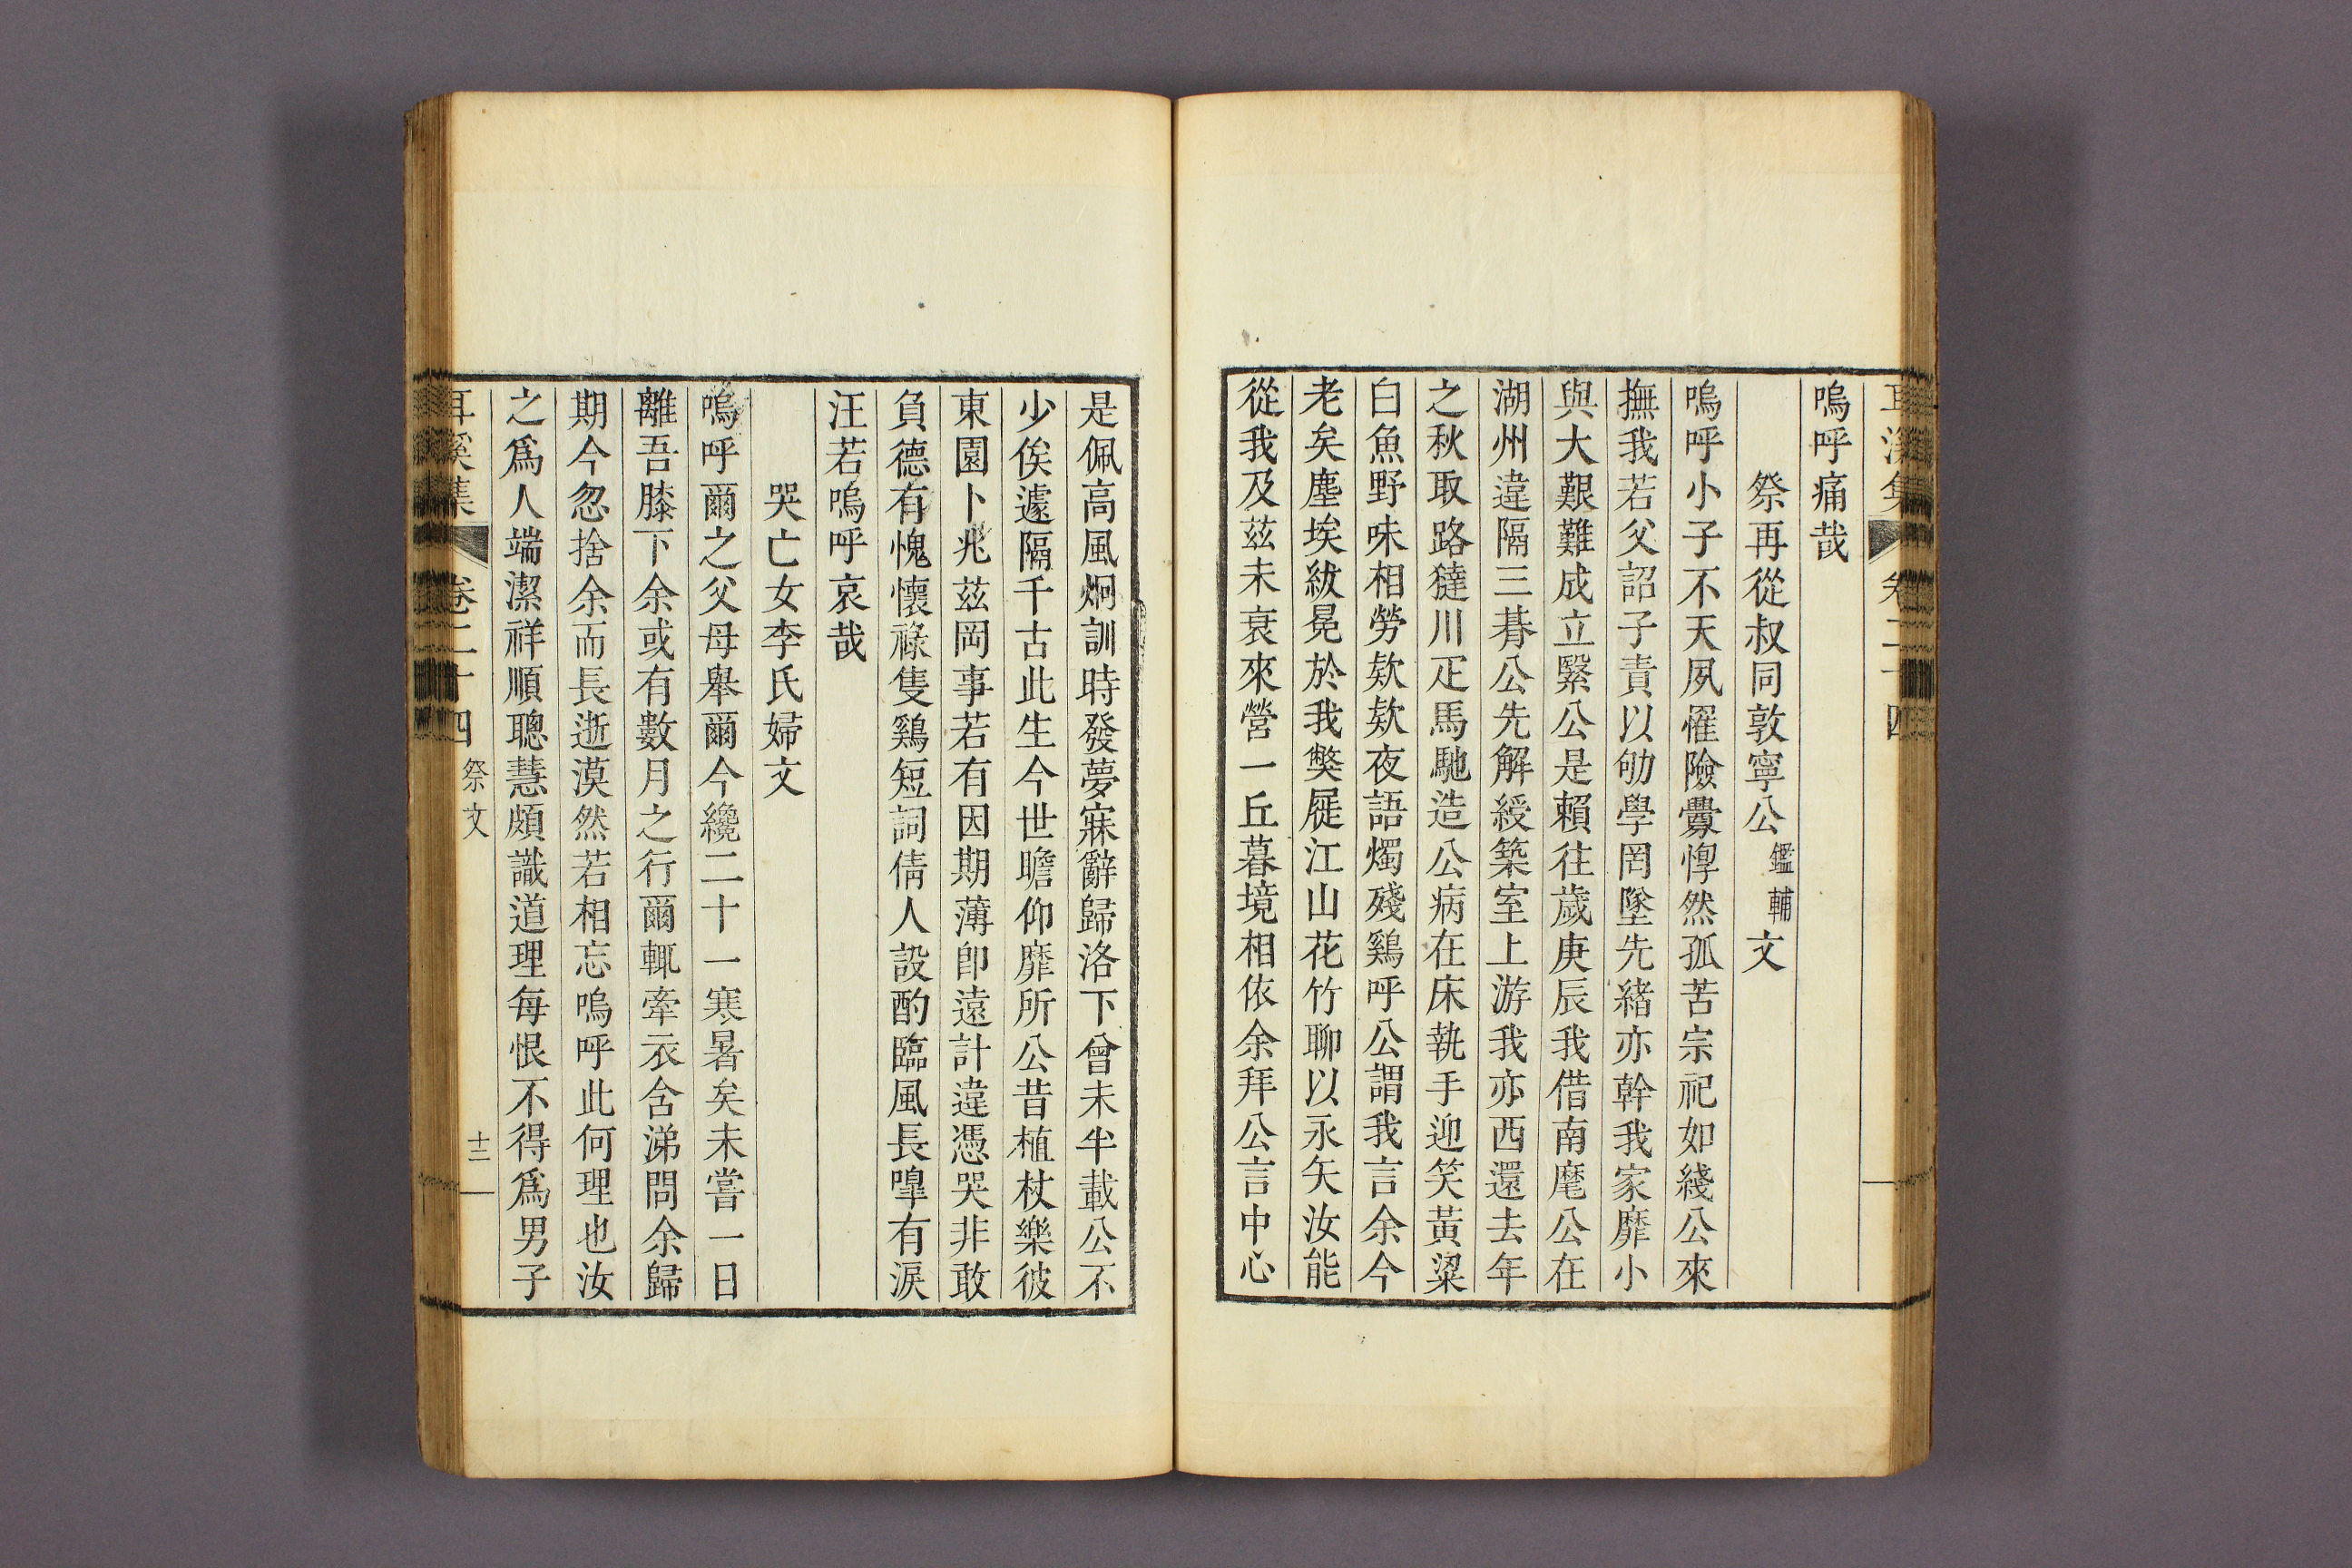 耳溪集 卷二十四
嗚呼痛哉
祭再從叔同敦寧公鑑輔文
嗚呼小子不天夙罹險釁惸然孤苦宗祀如綫公來
撫我若父詔子責以劬學罔墜先緖亦幹我家靡小
與大艱難成立緊公是賴往歲庚辰我借南麾公在
湖州違隔三朞公先解綬築室上游我亦西還去年
之秋取路㺚川疋馬馳造公病在床執手迎笑黃粱
白魚野味相勞欵欵夜語燭殘鷄呼公謂我言余今
老矣塵埃紱冕於我獘屣江山花竹聊以永矢汝能
從我及茲未衰來營一丘暮境相依余拜公言中心
是佩高風炯訓時發夢寐辭歸洛下曾未半載公不
少俟遽隔千古此生今世瞻仰靡所公昔植杖樂彼
東園卜兆茲岡事若有因期薄卽遠計違憑哭非敢
負德有愧懷祿隻鷄短詞倩人設酌臨風長嘷有淚
汪若嗚呼哀哉
哭亡女李氏婦文
嗚呼爾之父母舉爾今纔二十一寒暑矣未嘗一日
離吾膝下余或有數月之行爾輒牽衣含涕問余歸
期今忽捨余而長逝漠然若相忘嗚呼此何理也汝
之爲人端潔祥順聰慧頗識道理每恨不得爲男子
耳溪集 卷二十四 祭文 十二